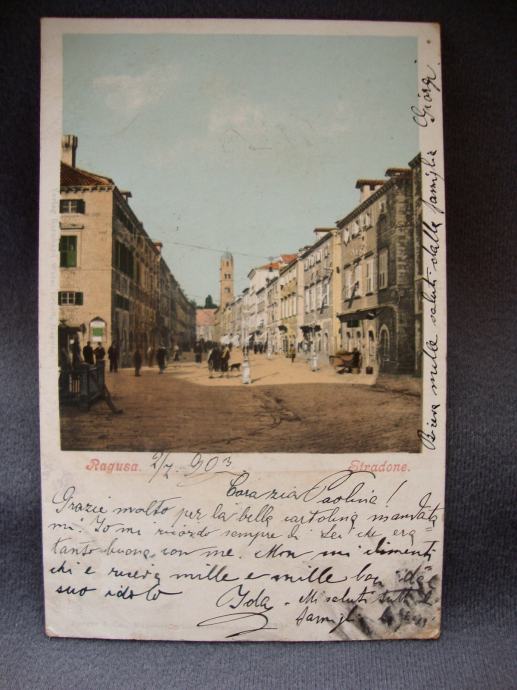 Ragusa. 2/7. 903. Stradone.
Cara zia Paolina!
Grazie molto per la bella cartolina mandata
mi. Io mi ricordo sempre di Lei che era
tanto buona con me. Non mi dimenti
chi e riceva mille e mille baci da
suo idolo Ida. Mi saluti tutta la
famiglia
mille saluti dalla famiglia Giorgi